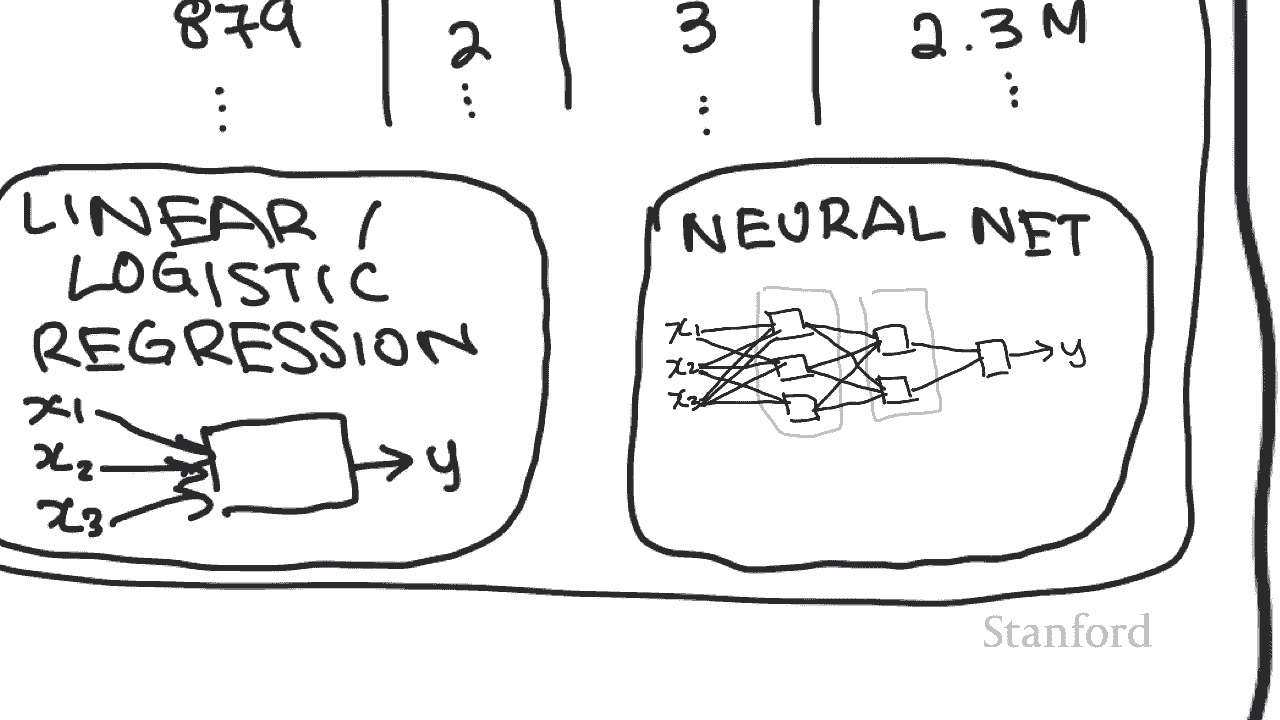 879 2 3 2.3 M
⋮ ⋮ ⋮ ⋮
LINEAR /
LOGISTIC
REGRESSION
x1
x2
x3
y
NEURAL NET
x1
x2
x3
y
Stanford